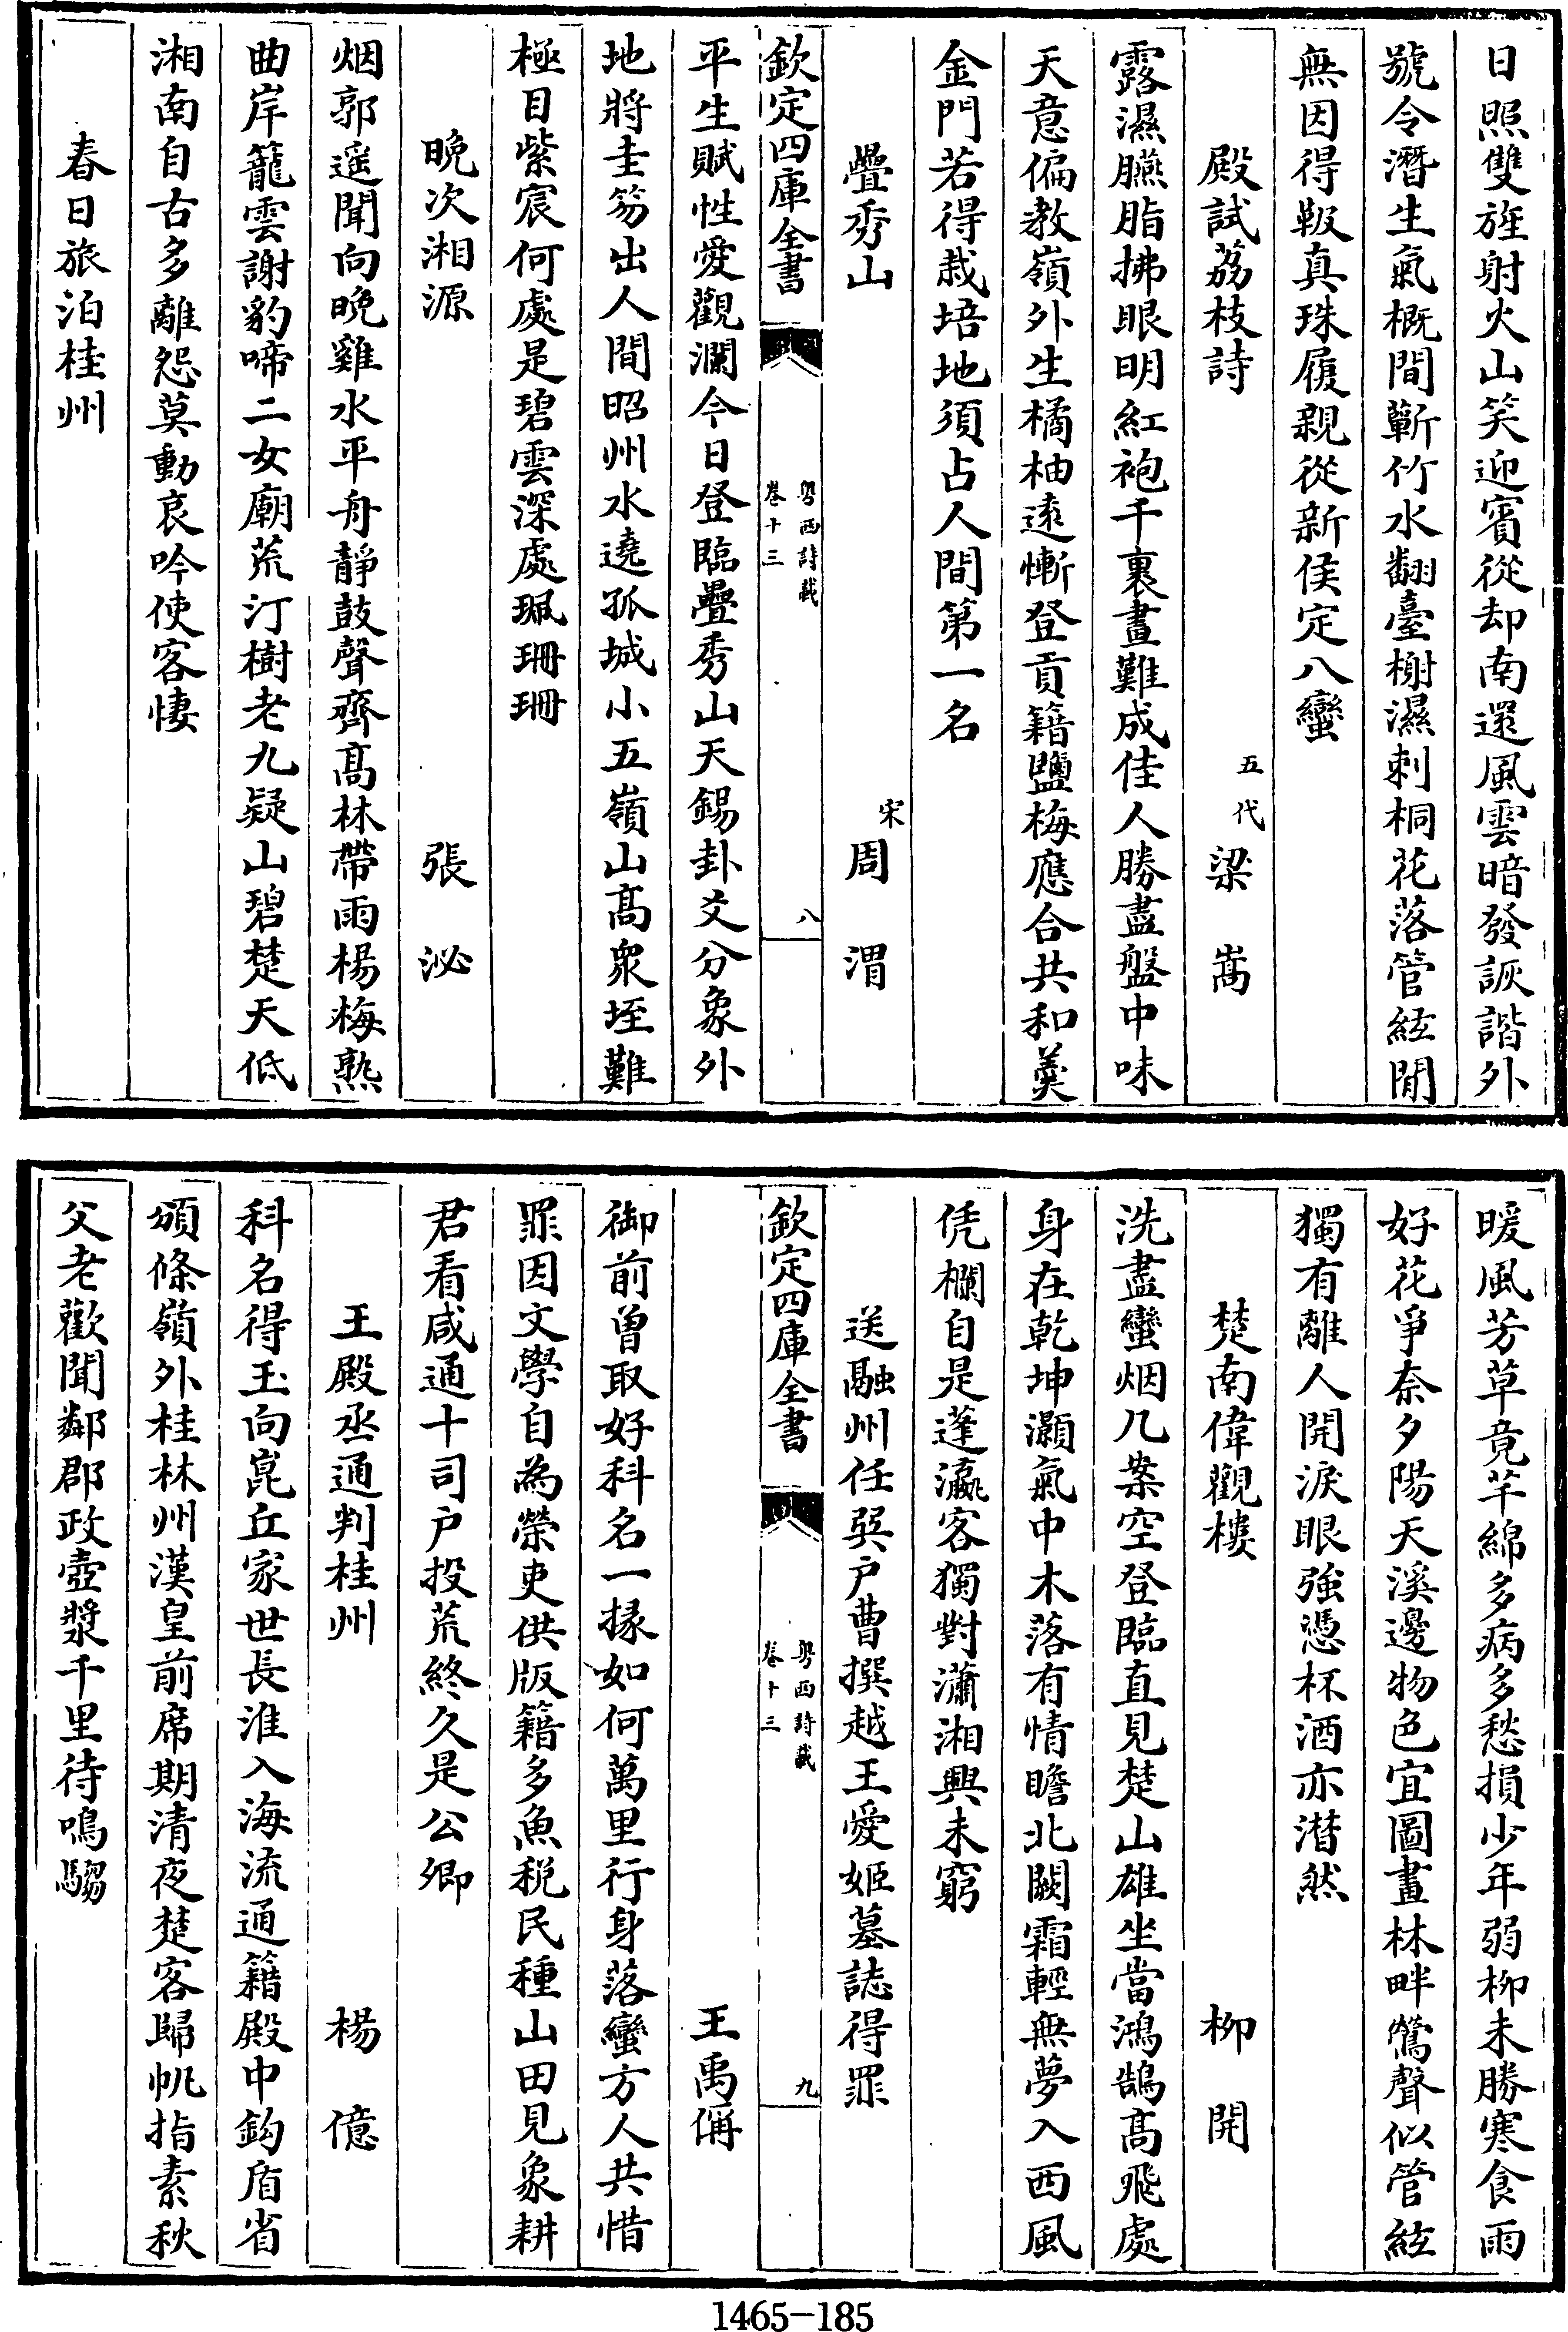 日照雙旌射火山笑迎賓從却南還風雲暗發詼諧外
號令潛生氣概間蘄竹水翻臺榭濕刺桐花落管絃閒
無因得靸真珠履親從新侯定八蠻
殿試荔枝詩 五代 梁嵩
露濕臙脂拂眼明紅袍千裹畫難成佳人勝盡盤中味
天意偏教嶺外生橘柚遠慚登貢籍鹽梅應合共和羹
金門若得栽培地須占人間第一名
疊秀山 宋 周渭
欽定四庫全書 粤西詩載 卷十三 八
平生賦性愛觀瀾今日登臨疊秀山天錫卦爻分象外
地將圭笏出人間昭州水遶孤城小五嶺山髙衆垤難
極目紫宸何處是碧雲深處珮珊珊
晩次湘源 張泌
烟郭遥聞向晩雞水平舟靜鼓聲齊髙林帶雨楊梅熟
曲岸籠雲謝豹啼二女廟荒汀樹老九疑山碧楚天低
湘南自古多離怨莫動哀吟使客悽
春日旅泊桂州
暖風芳草竟芊綿多病多愁損少年弱柳未勝寒食雨
好花爭奈夕陽天溪邊物色宜圖畫林畔鶯聲似管絃
獨有離人開淚眼強憑杯酒亦潸然
楚南偉觀樓 柳開
洗盡蠻烟几案空登臨直見楚山雄坐當鴻鵠髙飛處
身在乾坤灝氣中木落有情瞻北闕霜輕無夢入西風
凭欄自是蓬瀛客獨對瀟湘興未窮
送融州任巽户曹撰越王愛姬墓誌得罪
欽定四庫全書 粤西詩載 卷十三 九
王禹偁
御前曽取好科名一掾如何萬里行身落蠻方人共惜
罪因文學自為榮吏供版籍多魚税民種山田見象耕
君看咸通十司户投荒終久是公卿
王殿丞通判桂州 楊億
科名得玉向崑丘家世長淮入海流通籍殿中鈎盾省
頒條嶺外桂林州漢皇前席期清夜楚客歸帆指素秋
父老歡聞鄰郡政壺漿千里待鳴騶
1465-185